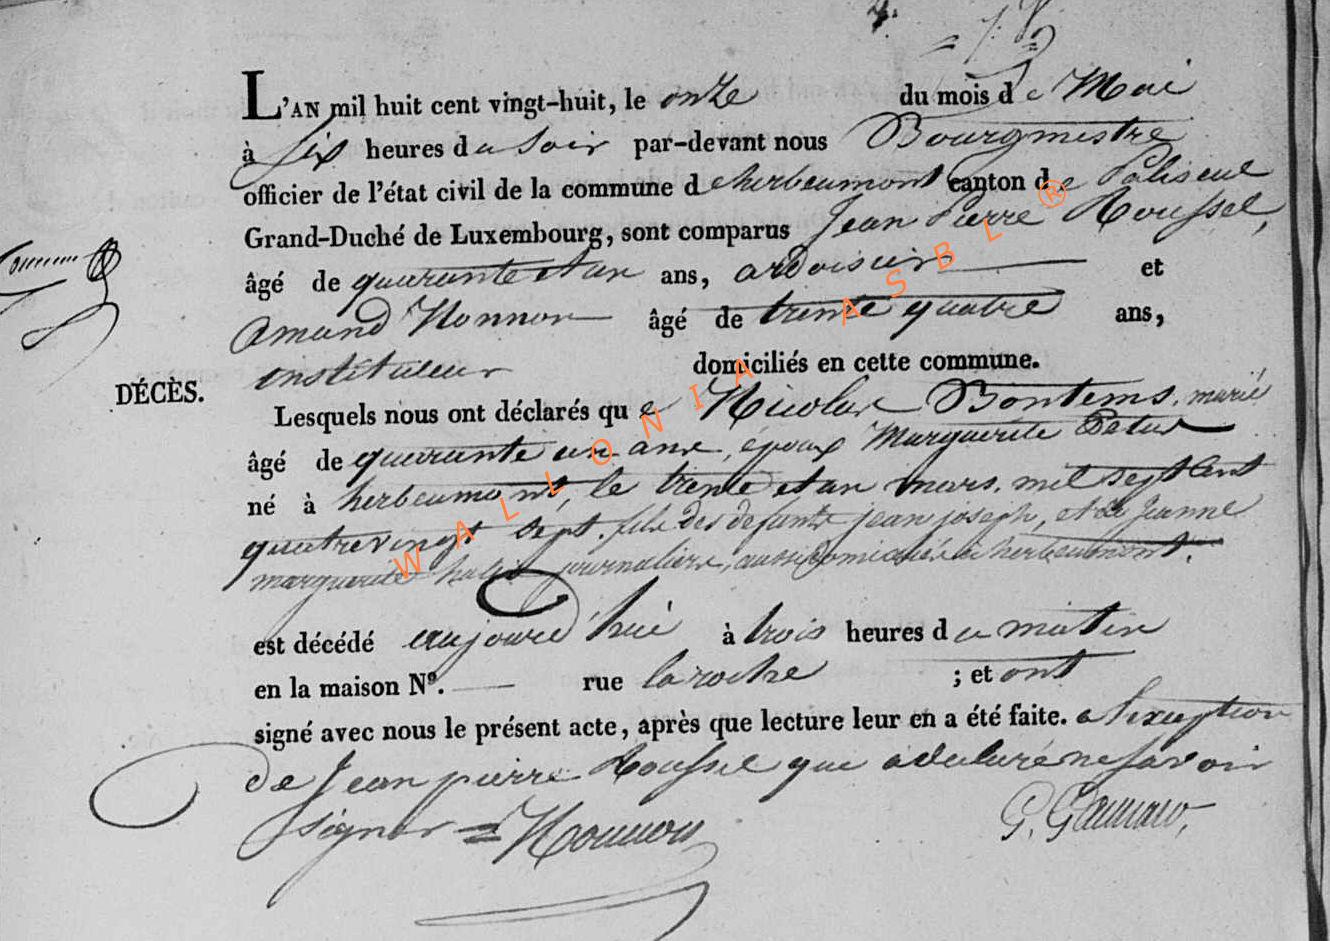 L'AN mil huit cent vingt-huit, le onze du mois de Mai
à six heures du soir par-devant nous Bourgmestre
officier de l'état civil de la commune d'herbeumont canton de Paliseul
Grand-Duché de Luxembourg, sont comparus Jean Pierre Roussel,
âgé de quarante et un ans, ardoisier et
amand Nonnon âgé de trente quatre ans,
instituteur domiciliés en cette commune.
DÉCÈS.
Lesquels nous ont déclarés que Nicolas Bontems, marié
âgé de quarante un ans, époux Marguerite
né à herbeumont, le trente et un mars, mil sept Cent
quatrevingt sept, fils des defunts jean joseph, et de Jeanne
marguerite journaliers, aussi domicilié à herbeumont.
est décédé aujourd'hui à trois heures du matin
en la maison Nº. rue laroche ; et ont
signé avec nous le présent acte, après que lecture leur en a été faite. a l'exception
de Jean pierre Roussel que a declaré ne savoir
signer = Nonnon
WALLONIA ASBL ®